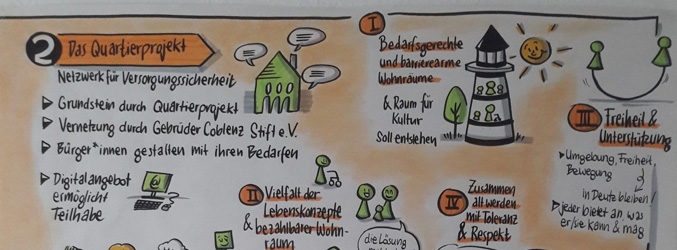 2 Das Quartierprojekt
Netzwerk für Versorgungssicherheit
Grundstein durch Quartierprojekt
Vernetzung durch Gebrüder Coblenz Stift e.V.
Bürger*innen gestalten mit ihren Bedarfen
Digitalangebot
ermöglicht
Teilhabe
I
Bedarfsgerechte
und barrierearme
Wohnräume
& Raum für
Kultur
Soll entstehen
II Vielfalt der
Lebenskonzepte
& bezahlbarer Wohn-
raum
III Freiheit &
Unterstützung
Umgebung, Freiheit,
Bewegung
in Deutz bleiben!
jeder bietet an, was
er/sie kann & mag
IV Zusammen
alt werden
mit Toleranz
& Respekt
die Lösung